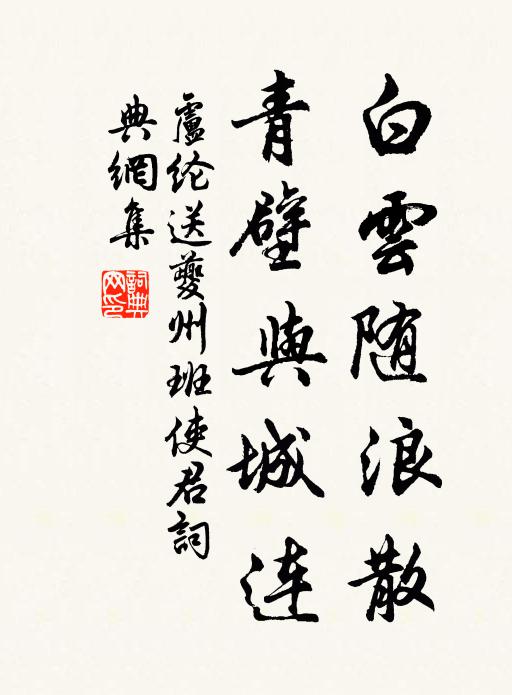 白雲随浪散
青壁與城連
盧纶送夔州班使君詞
典網集
詞典網印